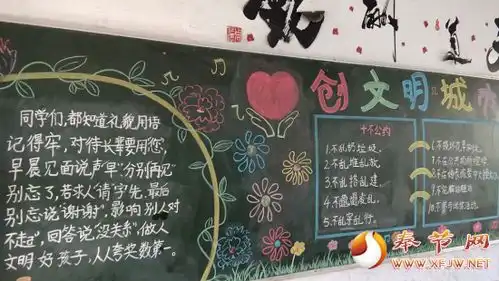 酬 道
创文明城
同学们,都知道礼貌用语
记得牢,对待长辈要用您,
早晨见面说声早,分别"再见"
别忘了,若求人"请"字先,最后
别忘说"谢谢",影响别人"对
不起",回答说"没关系",做人
文明好孩子,人人夸奖数第一。
十不公约
1.不乱扔垃圾,
2.不乱堆乱放,
3.不乱搭乱建,
4.不乱
5.不乱穿乱行.
6.不损坏花草树木,
7.不在公共场所
10.不参与迷信活动.
奉节网
WWW.XFJW.NET